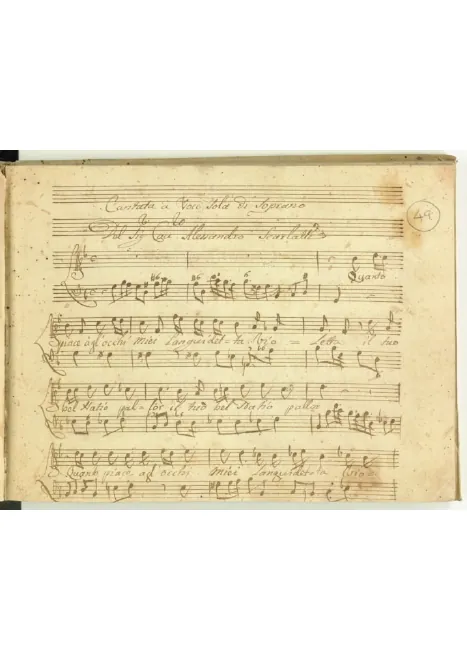 Cantata a Voce Sola di Soprano
49
Del Sig. Cav. Alessandro Scarlatti
Quanto
piace agl'occhi miei languidetta Vio = letta il tuo
bel pal = lor il tuo bel pallor
Quanto piace agl occhi miei languidetta Vio